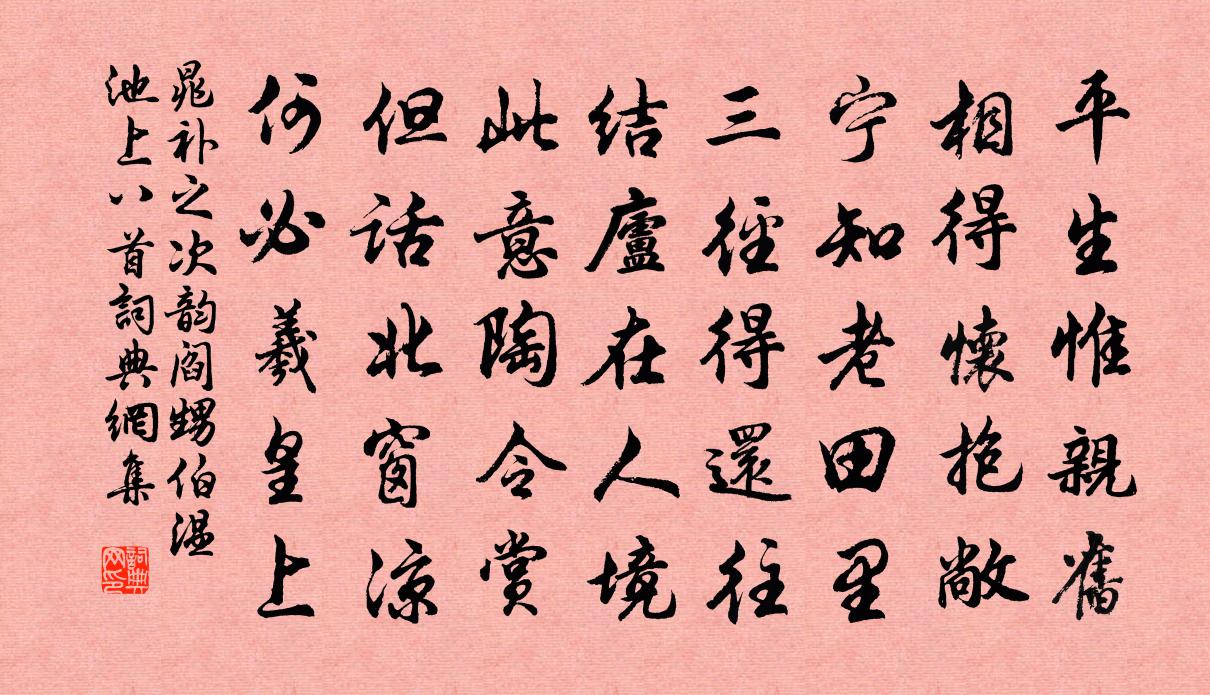 平生惟親舊
相得懷抱敞
宁知老田里
三徑得還往
结廬在人境
此意陶令賞
但话北窗凉
何必羲皇上
晁补之次韵阎甥伯温
池上八首詞典網集
詞典网印